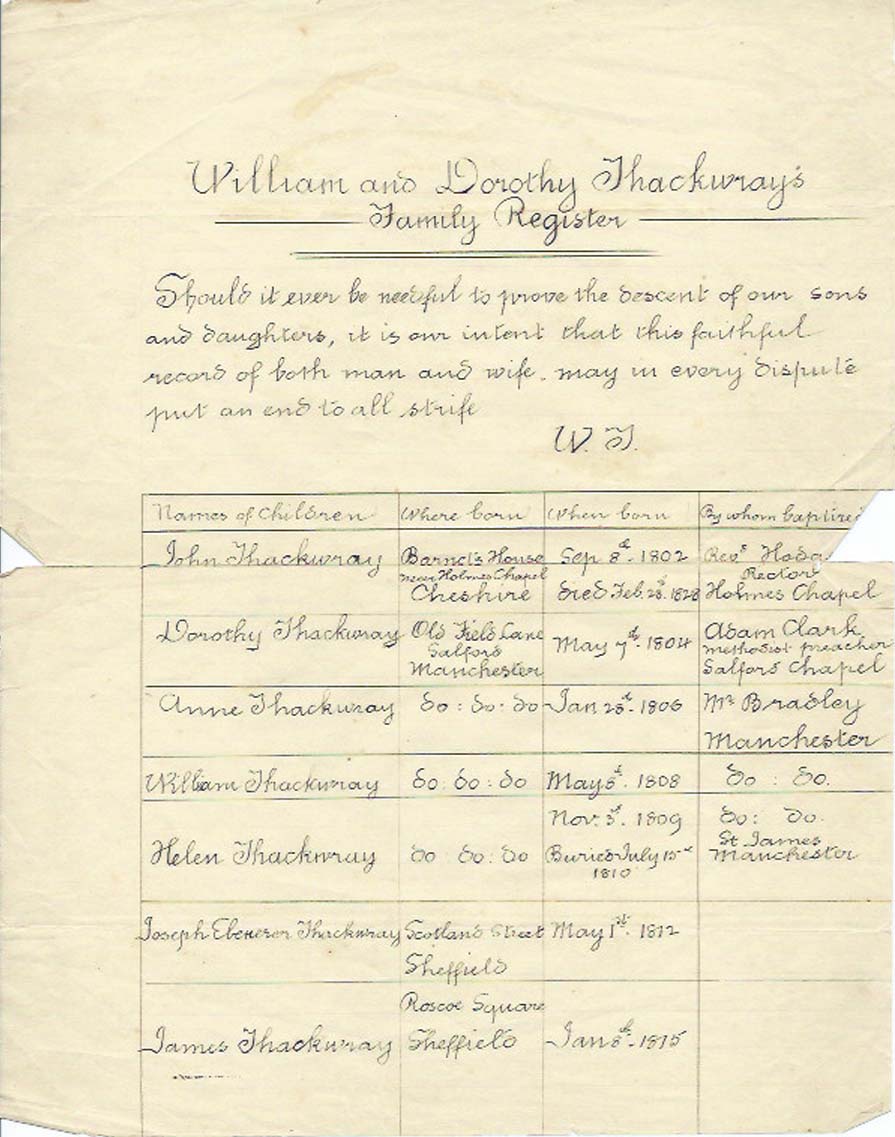 William and Dorothy Thackwray's
Family Register
Should it ever be needful to prove the descent of our sons
and daughters, it is our intent that this faithful
record of both man and wife. may in every dispute
put an end to all strife
W. T.
Names of Children Where born When born By whom baptized
John Thackwray Barnet's House Sep 8th. 1802 Revd
near Holmes Chapel Rector
Cheshire died Feb. 28. 1828 Holmes Chapel
Dorothy Thackwray Old Field Lane May 7th. 1804 Adam Clark
Salford methodist preacher
Manchester Salford Chapel
Anne Thackwray do : do : do Jan 28th. 1806 Mr Bradley
Manchester
William Thackwray do : do : do May 8th. 1808 do : do.
Nov. 3d. 1809 do : do.
St James
Helen Thackwray do do : do Buried July 15th Manchester
1810
Joseph Ebenezer Thackwray Scotland Street May 1st. 1812
Sheffield
Roscoe Square
James Thackwray Sheffield Jan 8th. 1815